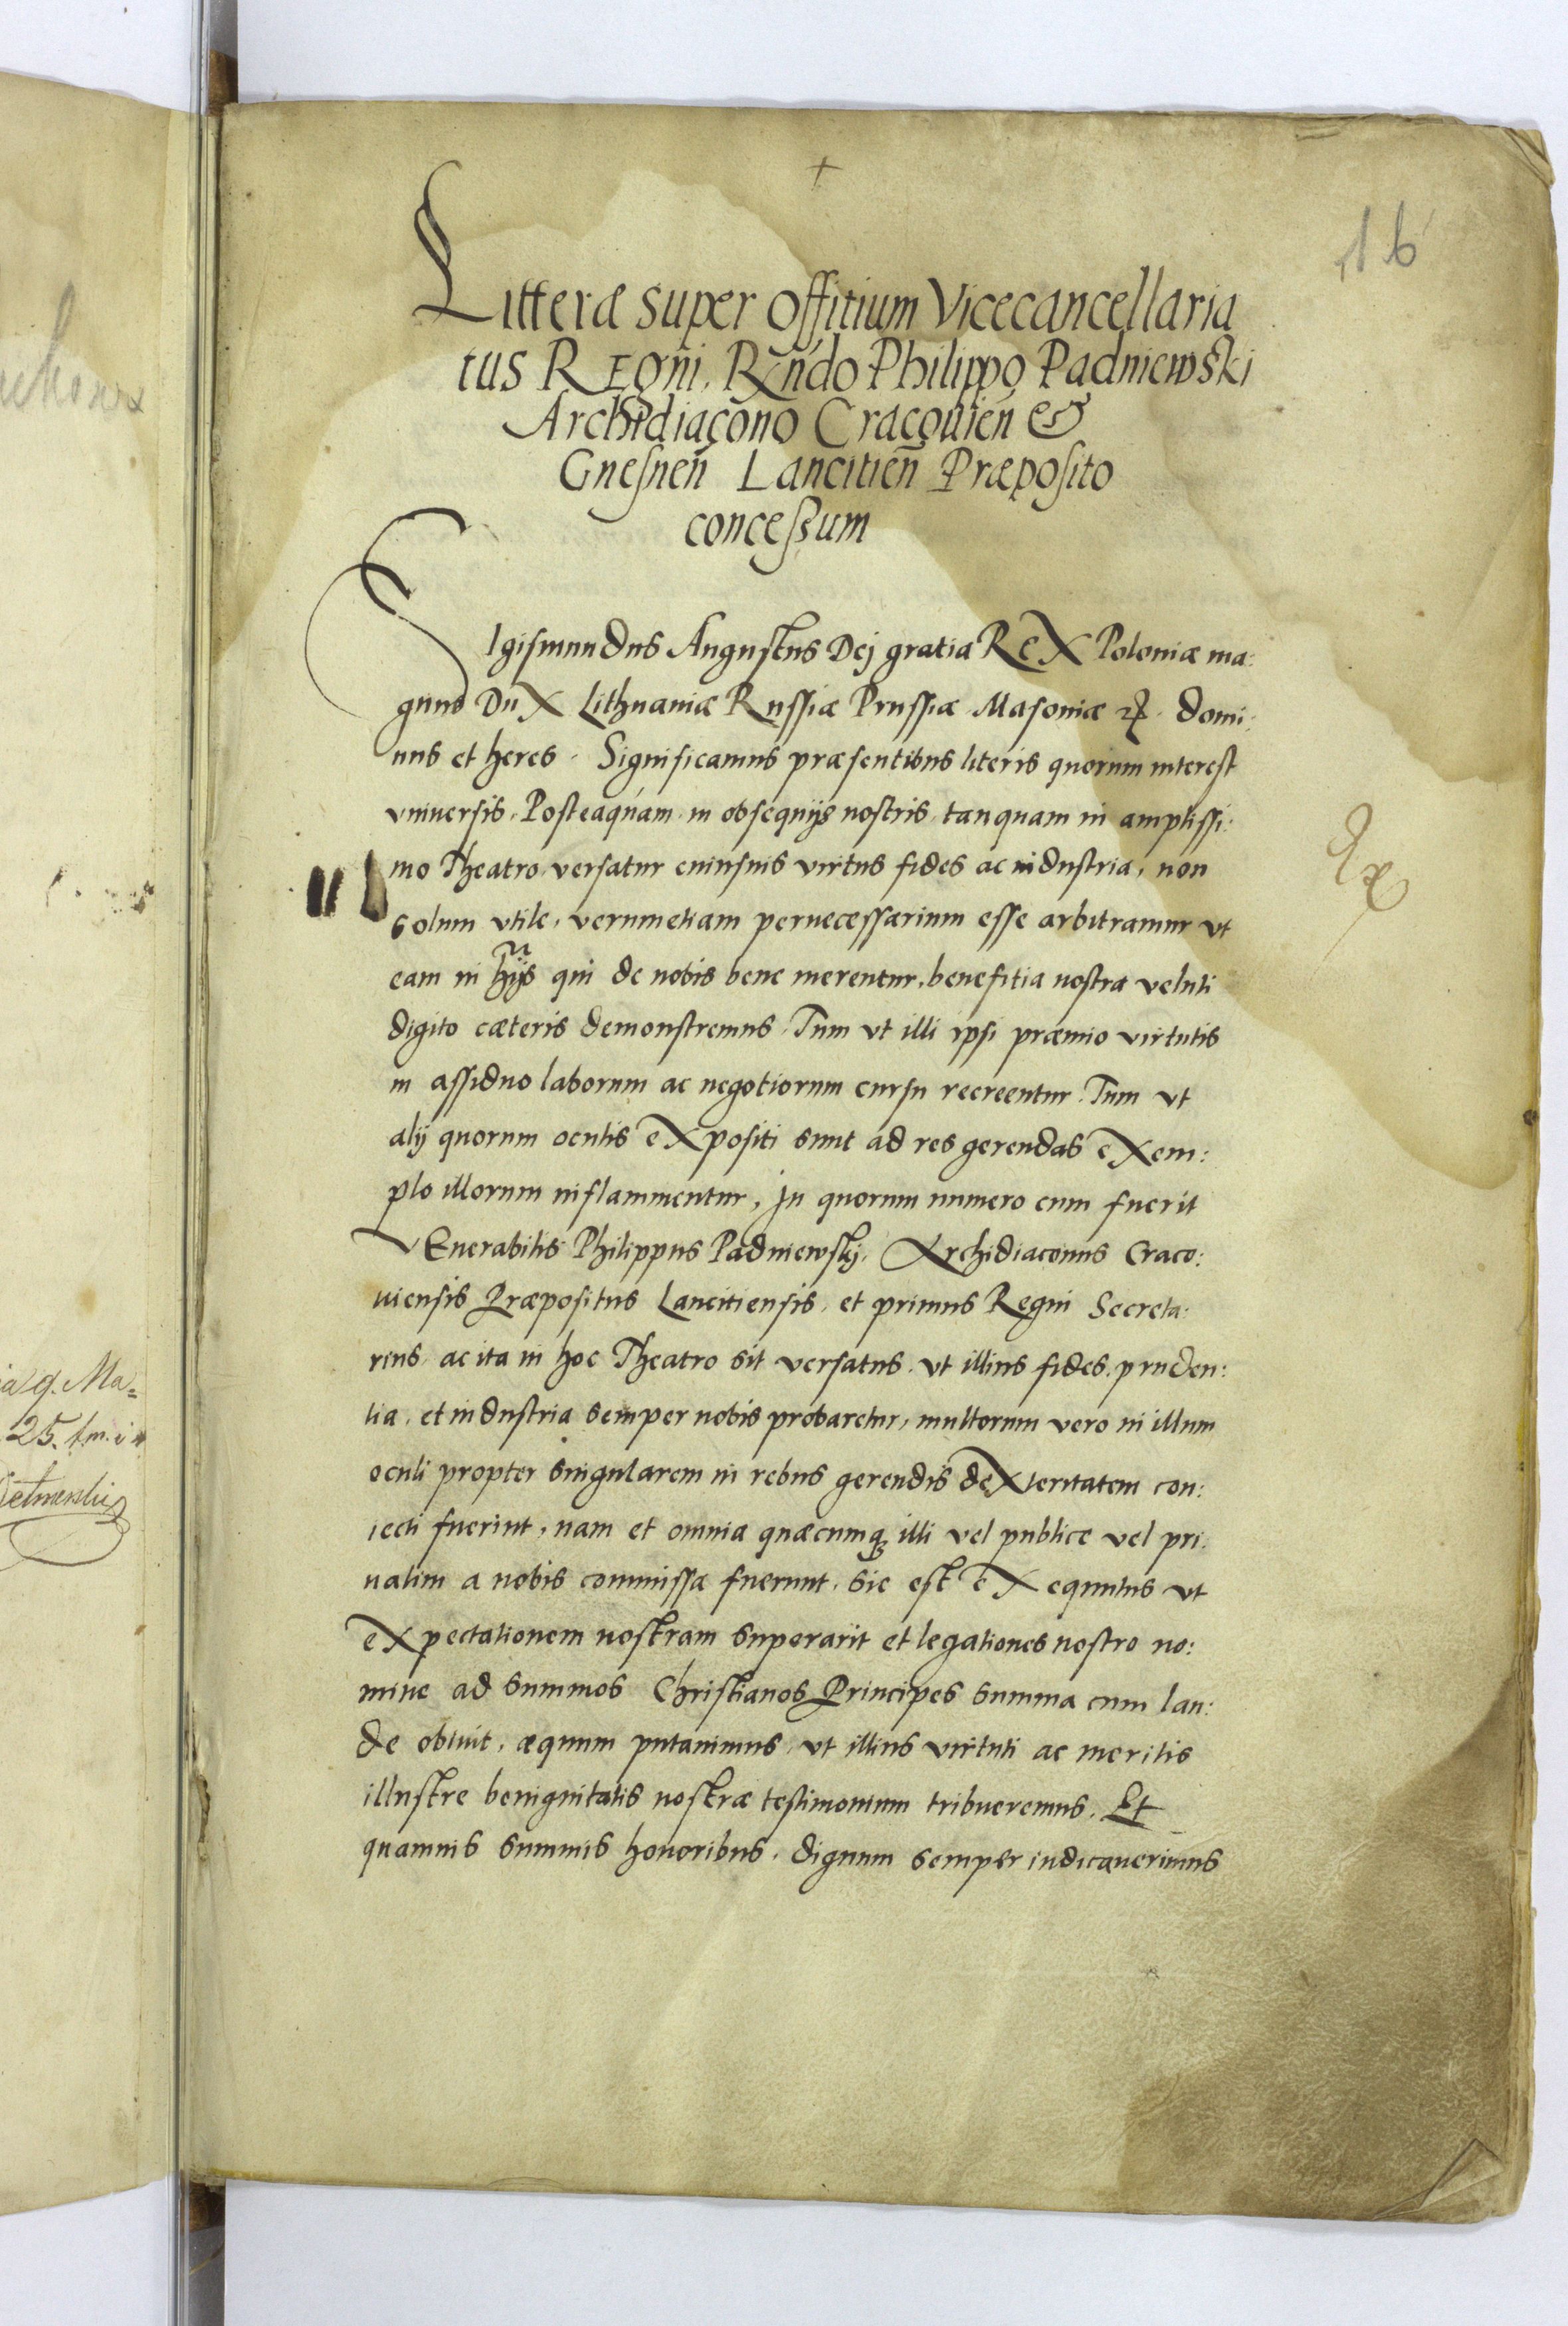 16
Litteræ super offitium Vicecancellaria
tus Regni. Rndo Philippo Padniewski
Archidiacono Cracouien &
Gnesnen Lancitien Præposito
concessum
Sigismundus Augustus Dej gratia ReX Poloniæ ma:
gnus DuX Lithuaniæ Russiæ Prussiæ Masoniæ domi:
nus et heres. Significamus præsentibus literis quorum interest
vniuersis. Posteaquam in obsequijs nostris tanquam in amplissi:
mo Theatro versatur cuiusuis virtus fides ac industria, non
solum vtile, verumetiam pernecessarium esse arbitramur vt
eam in hijs qui de nobis bene merentur, benefitia nostra veluti
digito cæteris demonstremus. Tum vt illi ipsi præmio virtutis
in assiduo laborum ac negotiorum cursu recreentur. Tum vt
alij quorum oculis eXpositi sunt ad res gerendas eXem:
plo illorum inflammentur, In quorum numero cum fuerit
VEnerabilis Philippus Padniewskj, Archidiaconus Craco:
uiensis Præpositus Lancitiensis, et primus Regni Secreta:
rius, ac ita in hoc Theatro sit versatus, vt illius fides, pruden:
tia, et industria semper nobis probaretur, multorum vero in illum
oculi propter singularem in rebus gerendis deXteritatem con:
iecti fuerint, nam et omnia quæcumq illi vel publice vel pri:
uatim a nobis commissa fuerunt, sic est eXequutus vt
eXpectationem nostram superarit et legationes nostro no:
mine ad summos Christianos Principes summa cum lau:
de obiuit, æquum putauimus, vt illius virtuti ac meritis
illustre benignitatis nostræ testimonium tribueremus. Et
quamuis summis honoribus, dignum semper iudicauerimus
Ma=
25.